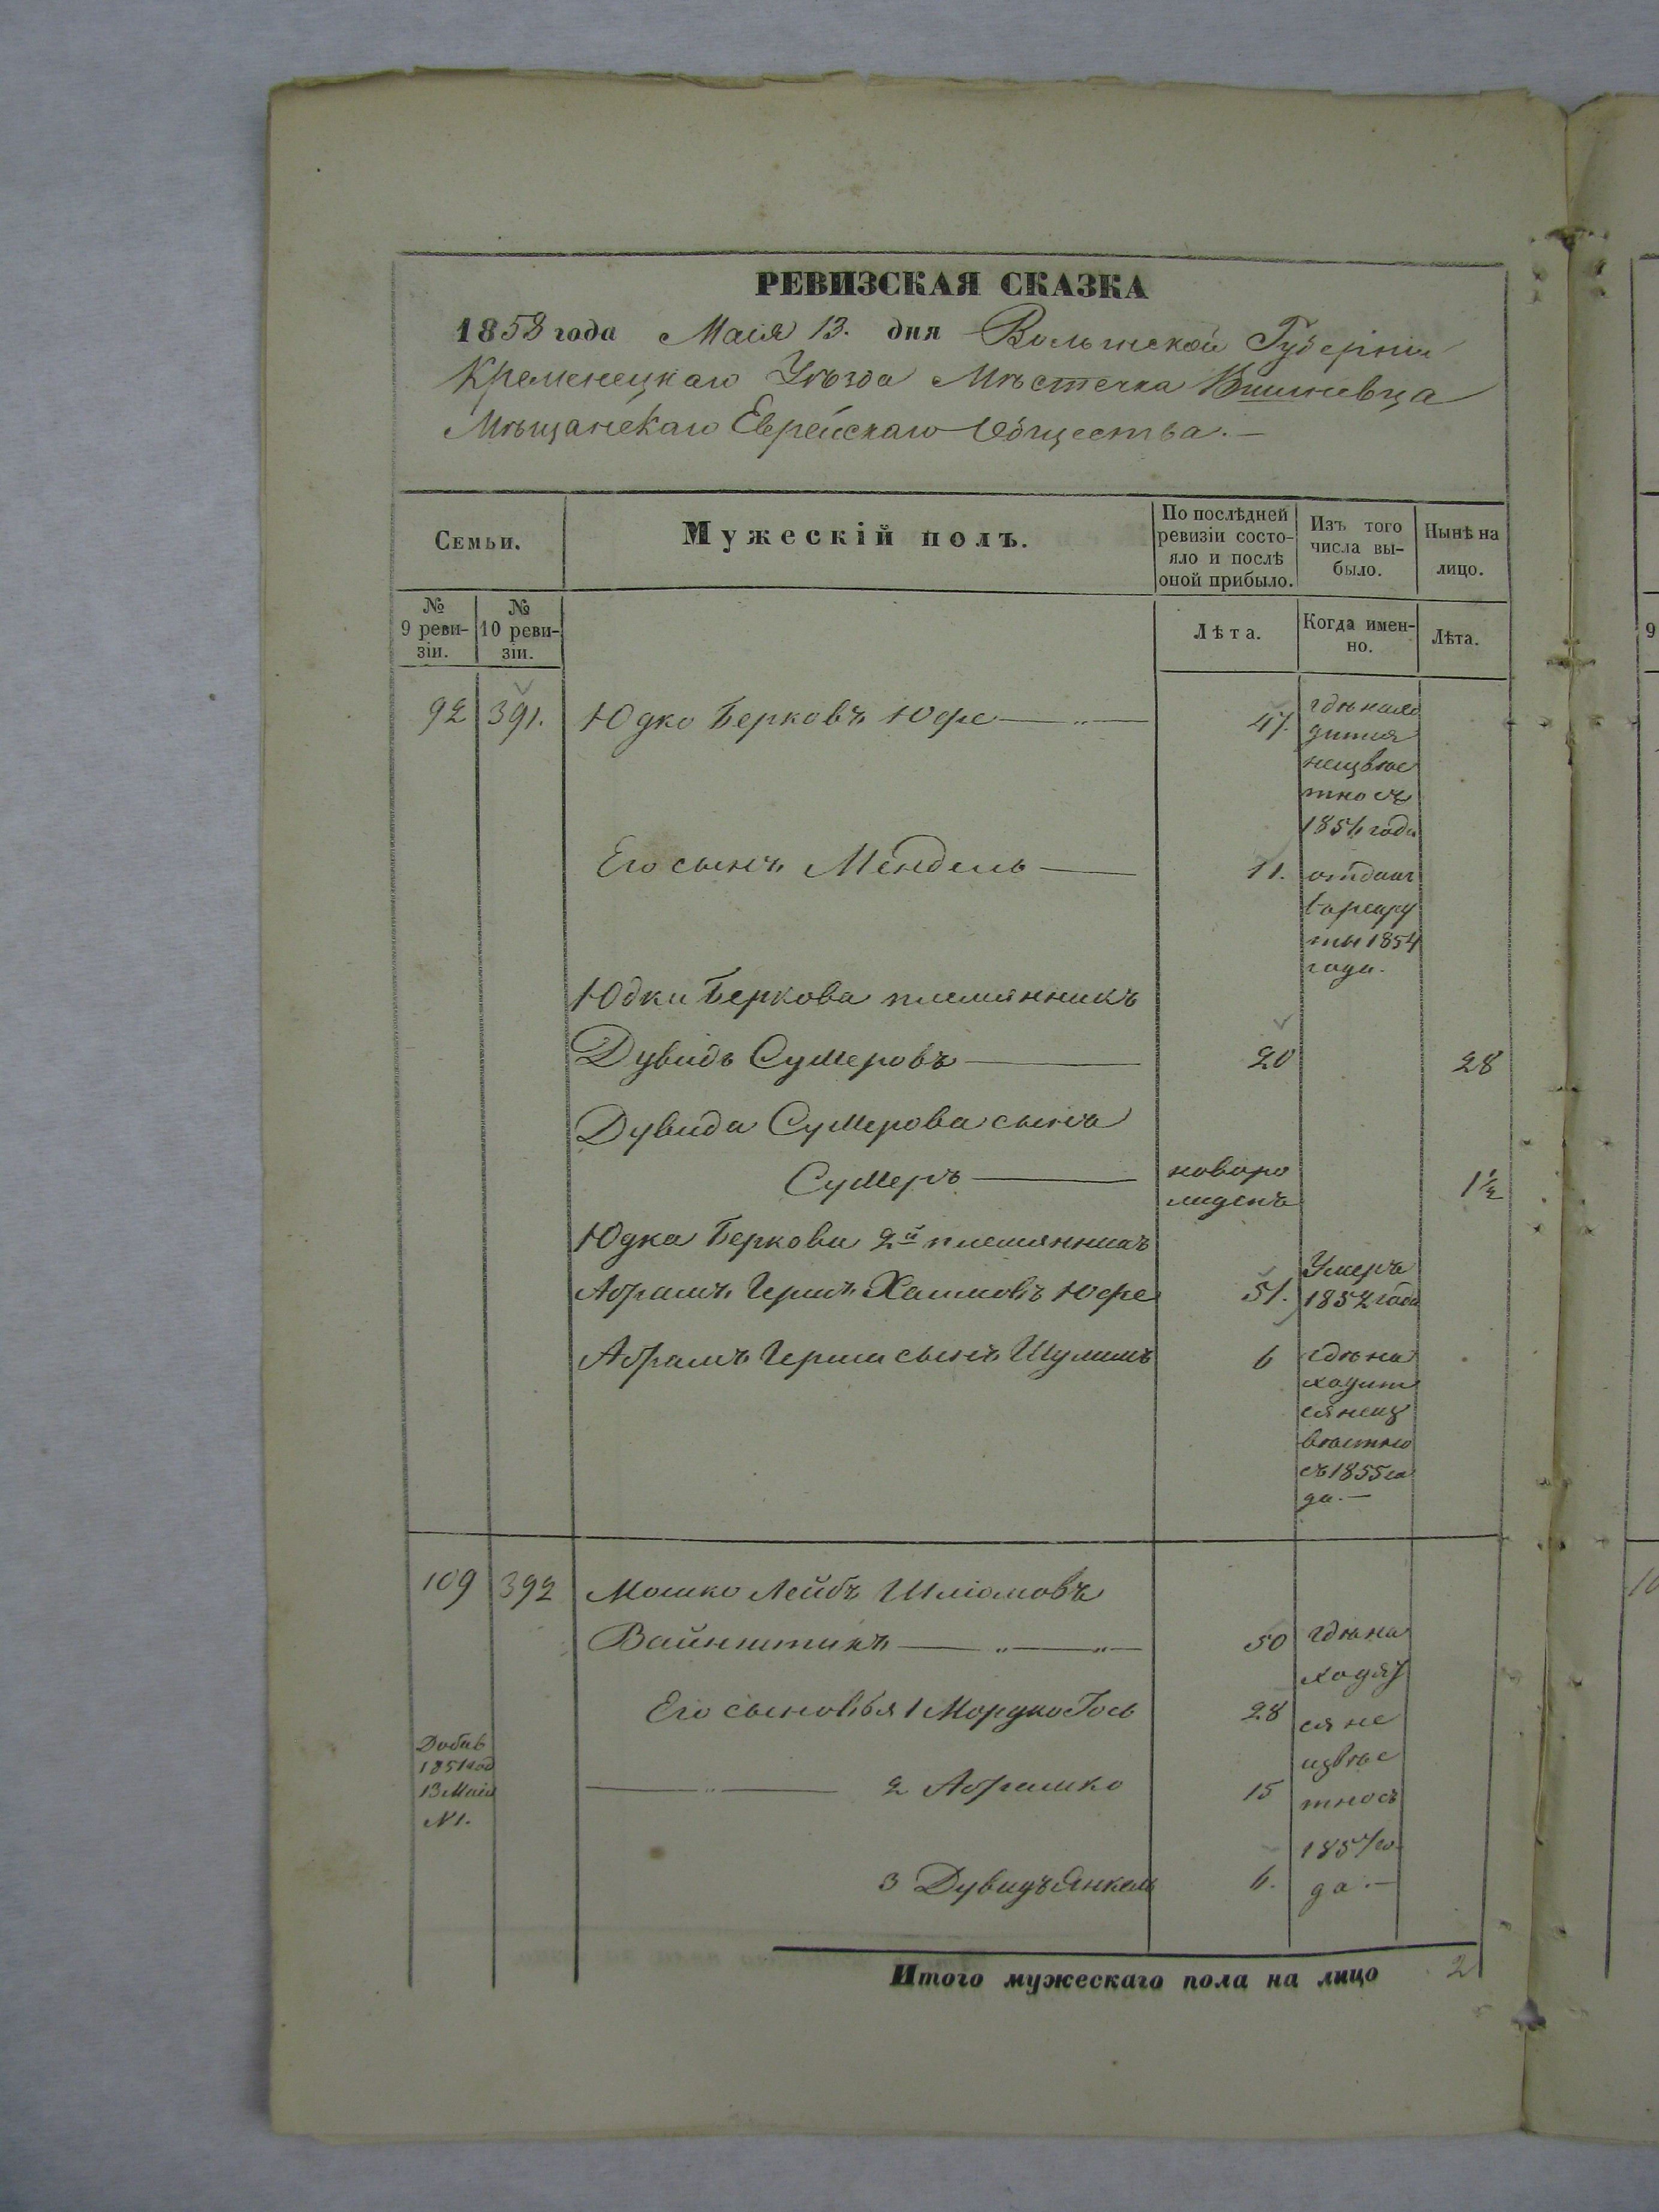 РЕВИЗСКАЯ СКАЗКА
1858 года Маія 13. дня Волынской Губерніи
Кременецкаго Уѣзда Мѣстечка Вишневца
Мѣщанскаго Еврейскаго Общества.—
Семьи.
Мужескій полъ.
По послѣдней
ревизіи состо-
яло и послѣ
оной прибыло.
Изъ того
числа вы-
было.
Нынѣ на
лицо.
№
9 реви-
зіи.
№
10 реви-
зіи.
Лѣта.
Когда имен-
но.
Лѣта.
92 391. Юдко Берковъ Юфе 47.
гдѣ нахо
дится
неизвѣс
тно съ
1854 года
Его сынъ Мендель 11.
отданъ
в рекру
ты 1854
года.
Юдки Беркова племянникъ
Дувидъ Сумеровъ 20 28
Дувида Сумерова сынъ
Сумеръ новоро 1½
жденъ
Юдка Беркови 2й племянникъ
Абрамъ Гершъ Хаимовъ Юфе 51.
Умеръ
1852 года
Абрамъ Герша сынъ Шулимъ 6
гдѣ на
ходит
ся неиз
вѣстно
съ 1855 го
да.—
109 392 Мошко Лейбъ Шліомовъ
Вайнштикъ 50
Его сыновья 1 Мордко Гось 28
2 Абрамко 15
3 Дувидъ Янкель 6.
гдѣ на
ходят
ся не
извѣс
тно съ
1857 го
да.—
Добав
1851 год
13 Маія
№ 1.
Итого мужескаго пола на лицо 2